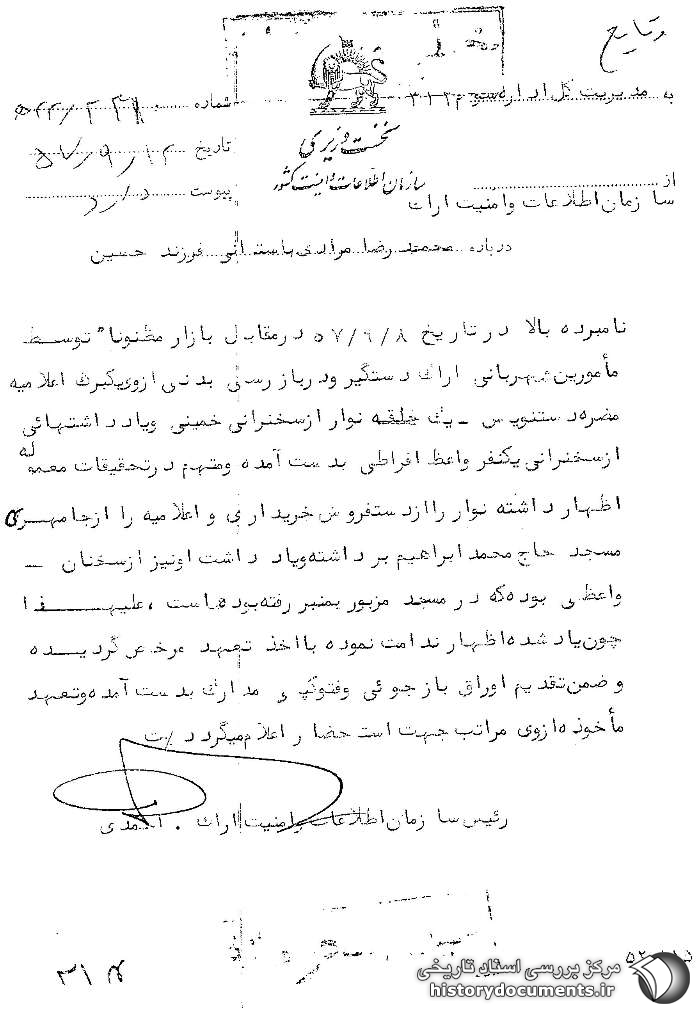 وقایع
به مدیریت کل اداره سوم ۳۱۲
شماره
نخست وزیری
تاریخ ۵۷/۹/۱۲
سازمان اطلاعات و امنیت کشور
پیوست دارد
از
سازمان اطلاعات وامنیت اراک
درباره محمد رضا مرادی باستانی فرزند حسین
نامبرده بالا درتاریخ ۵۷/۹/۸ درمقابل بازار مظنونا" توسط
مأمورین شهربانی اراک دستگیر ودربازرسی بدنی ازوی یکبرگ اعلامیه
مضره دستنویس ـ یک حلقه نوار ازسخنرانی خمینی ویادداشتهائی
ازسخنرانی یکنفر واعظ افراطی بدست آمده ومتهم درتحقیقات معموله
اظهار داشته نوار راازدستفروش خریداری و اعلامیه را ازجامهری
مسجد حاج محمد ابراهیم برداشته ویادداشت اونیز ازسخنان ـ
واعظی بوده که در مسجد مزبور بمنبر رفته بوده است ، علیهذا
چون یاد شده اظهار ندامت نموده بااخذ تعهد مرخص گردیده
و ضمن تقدیم اوراق بازجوئی وفتوکپی مدارک بدست آمده وتعهد
مأخوذه ازوی مراتب جهت استحضار اعلام میگردد
رئیس سازمان اطلاعات وامنیت اراک . احمدی
۳۱
مرکز بررسی اسناد تاریخی
historydocuments.ir